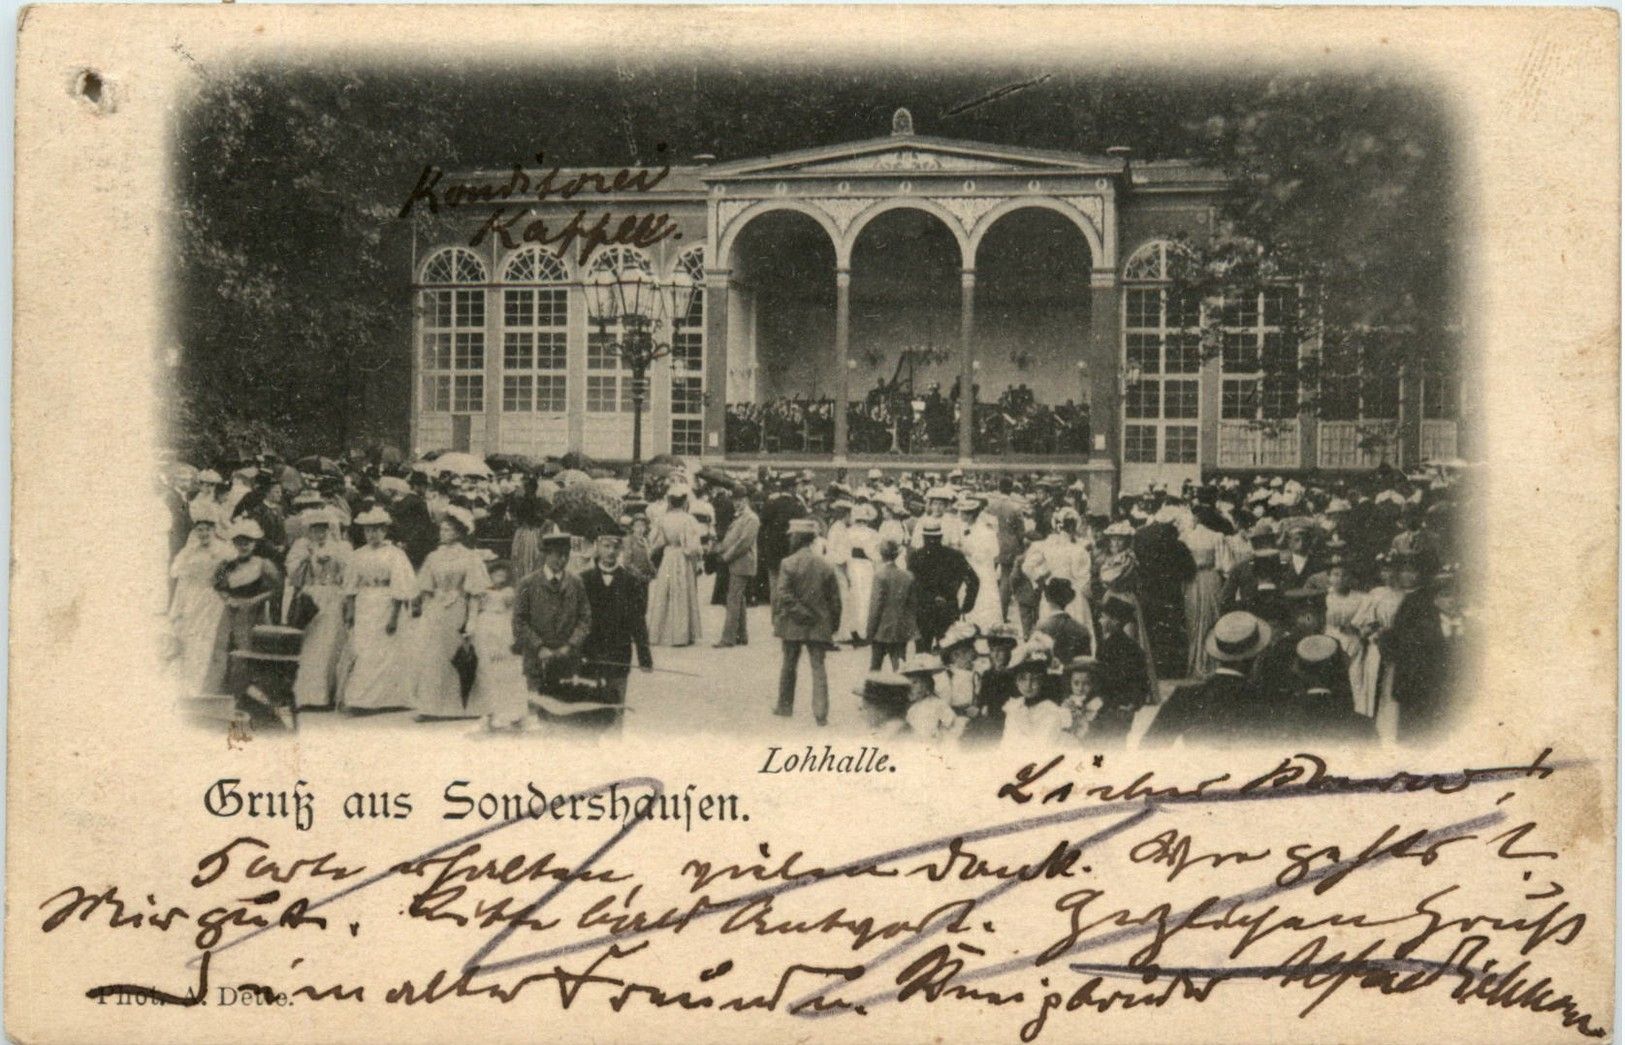 Konditorei
Kappell.
Lohhalle.
Gruß aus Sondershausen.
Lieber
Karte erhalten, vielen Dank. Wie gehts?
Mir gut. Bitte bald Antwort. Herzlichen Gruß
Dein alter Freund u. Kneipbruder Alfred
Phot. A. Dette.